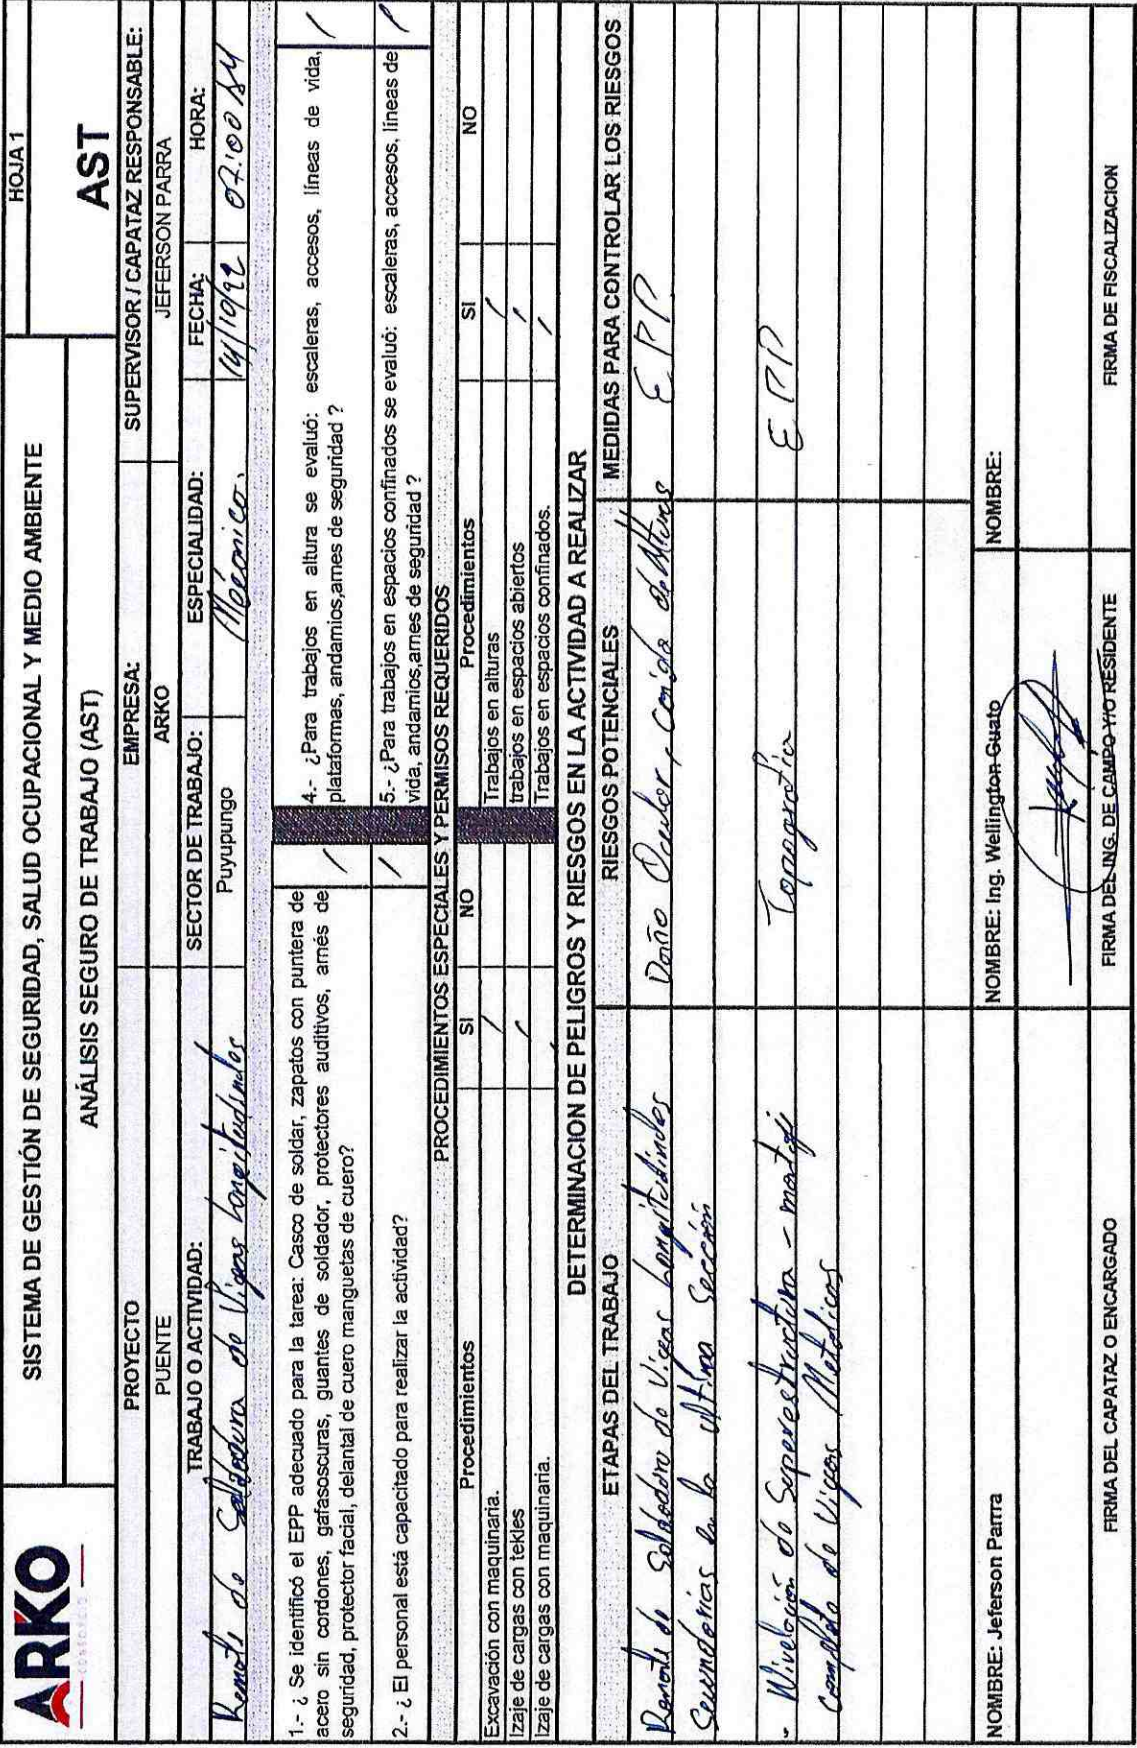 ARKO
SISTEMA DE GESTIÓN DE SEGURIDAD, SALUD OCUPACIONAL Y MEDIO AMBIENTE
HOJA 1
ANÁLISIS SEGURO DE TRABAJO (AST)
AST
PROYECTO
EMPRESA:
SUPERVISOR / CAPATAZ RESPONSABLE:
PUENTE
ARKO
JEFERSON PARRA
TRABAJO O ACTIVIDAD:
SECTOR DE TRABAJO:
ESPECIALIDAD:
FECHA:
HORA:
Remate de Soldadura de Vigas Longitudinales
Puyupungo
Mecanico.
14/10/22
07:00 AM
1.- ¿ Se identificó el EPP adecuado para la tarea: Casco de soldar, zapatos con puntera de
acero sin cordones, gafasoscuras, guantes de soldador, protectores auditivos, arnés de
seguridad, protector facial, delantal de cuero manguetas de cuero?
/
4.- ¿Para trabajos en altura se evaluó: escaleras, accesos, líneas de vida,
plataformas, andamios,arnes de seguridad ?
/
2.- ¿ El personal está capacitado para realizar la actividad?
/
5.- ¿Para trabajos en espacios confinados se evaluó: escaleras, accesos, líneas de
vida, andamios,arnes de seguridad ?
/
PROCEDIMIENTOS ESPECIALES Y PERMISOS REQUERIDOS
Procedimientos
SI
NO
Procedimientos
SI
NO
Excavación con maquinaria.
/
Trabajos en alturas
/
Izaje de cargas con tekles
/
trabajos en espacios abiertos
/
Izaje de cargas con maquinaria.
Trabajos en espacios confinados.
/
DETERMINACION DE PELIGROS Y RIESGOS EN LA ACTIVIDAD A REALIZAR
ETAPAS DEL TRABAJO
RIESGOS POTENCIALES
MEDIDAS PARA CONTROLAR LOS RIESGOS
Remate de Soldadura de Vigas Longitudinales
Daño Ocular, caida de Alturas
EPP
Secundarias en la ultima Sección
- Nivelación de Superestructura - montaje
Topografica
EPP
Completo de Vigas Metalicas
NOMBRE: Jeferson Parrra
NOMBRE: Ing. Wellington Guato
NOMBRE:
FIRMA DEL CAPATAZ O ENCARGADO
FIRMA DEL ING. DE CAMPO Y/O RESIDENTE
FIRMA DE FISCALIZACION